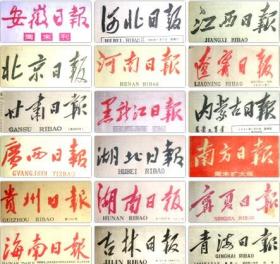 安徽日報
周末刊
河北日報
HEBEI RIBAO
江西日報
JIANGXI RIBAO
北京日報
河南日報
HENAN RIBAO
遼寧日報
LIAONING RIBAO
甘肃日報
GANSU RIBAO
黑龙江日報
内蒙古日報
廣西日報
GVANGJSIH YIZBAO
湖北日報
HUBEI RIBAO
南方日報
周末扩大版
貴州日報
GUIZHOU RIBAO
湖南日報
HUNAN RIBAO
寧夏日報
NINGXIA RIBAO
海南日報
吉林日報
JILIN RIBAO
青海日報
QINGHAI RIBAO